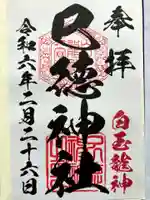 奉拝
白玉龍神
巳徳神社
令和六年二月二十六日